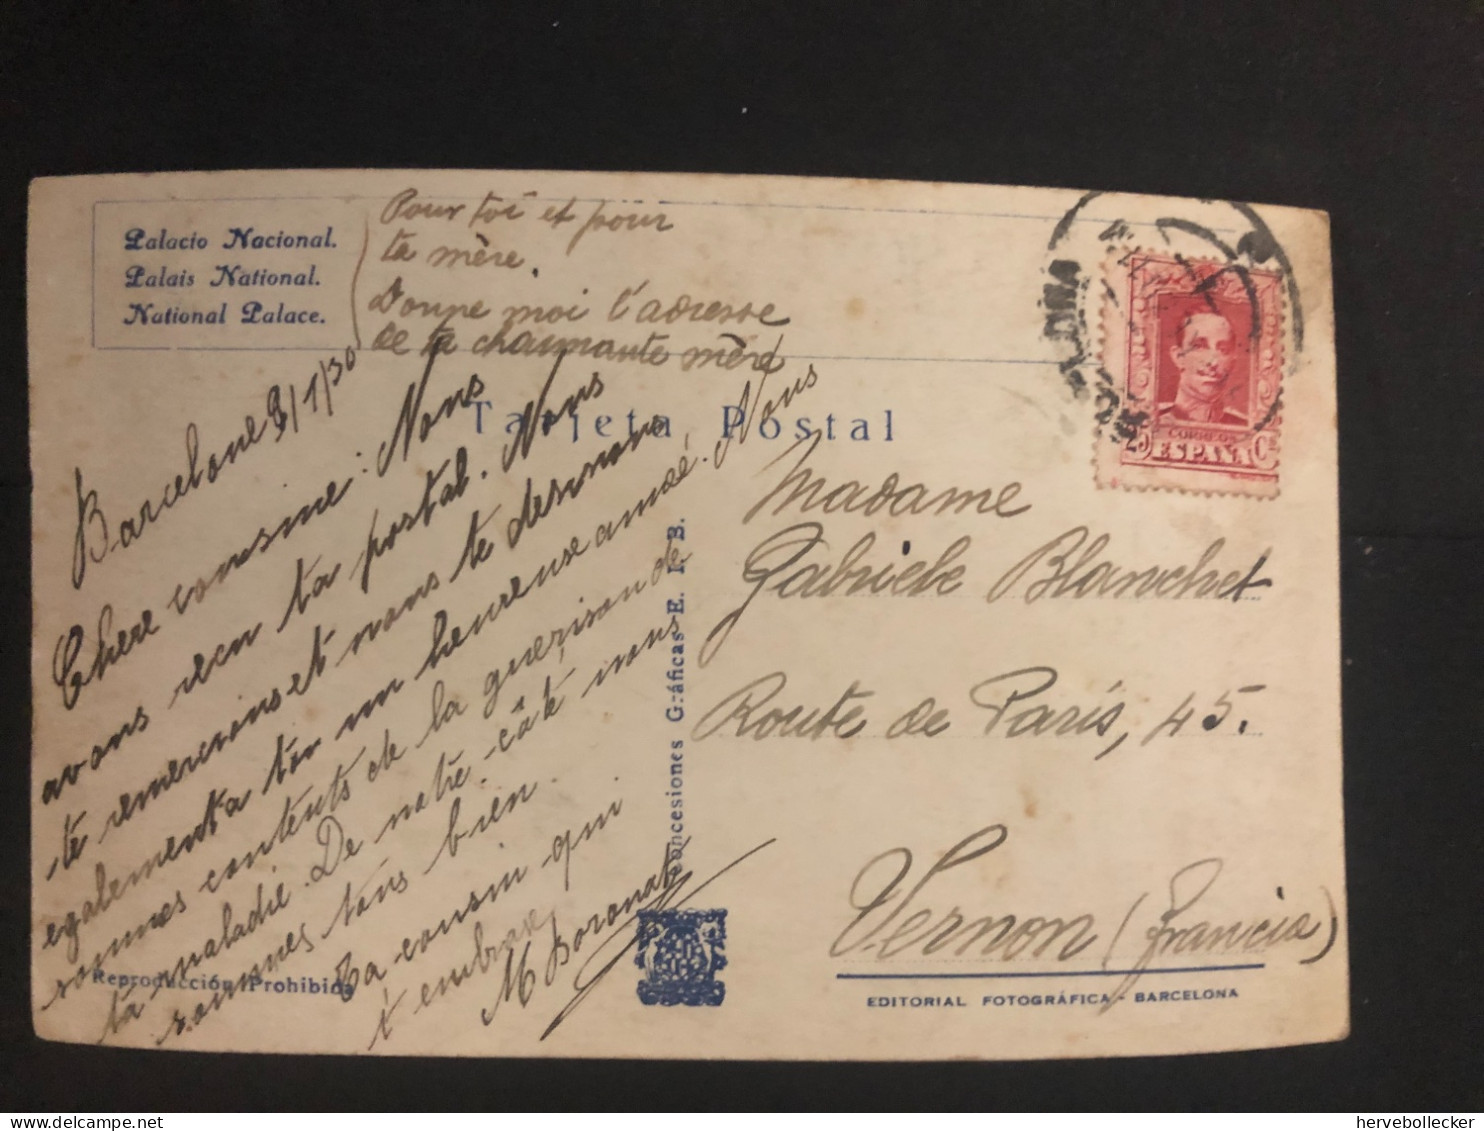 Palacio Nacional.
Palais National.
National Palace.
Pour toi et pour
ta mère.
Donne moi l'adresse
de ta charmante mère
Tarjeta Postal
Barcelone 9/1/30
Chere cousine: Nous
avons reçu ta postal. Nous
te remercions et nous te desirons
egalement a toi un heureuse année. Nous
sommes contents de la guerison de
ta maladie. De notre côté nous
sommes tous bien.
Ta cousin qui
t'embrase
M Boronat
Concesiones Gráficas E. I. B.
CORREOS
25 ESPAÑA Cs
Madame
Gabriele Blanchet
Route de París, 45.
Vernon (Francia)
Reproducción Prohibida
EDITORIAL FOTOGRÁFICA - BARCELONA
hervebollecker